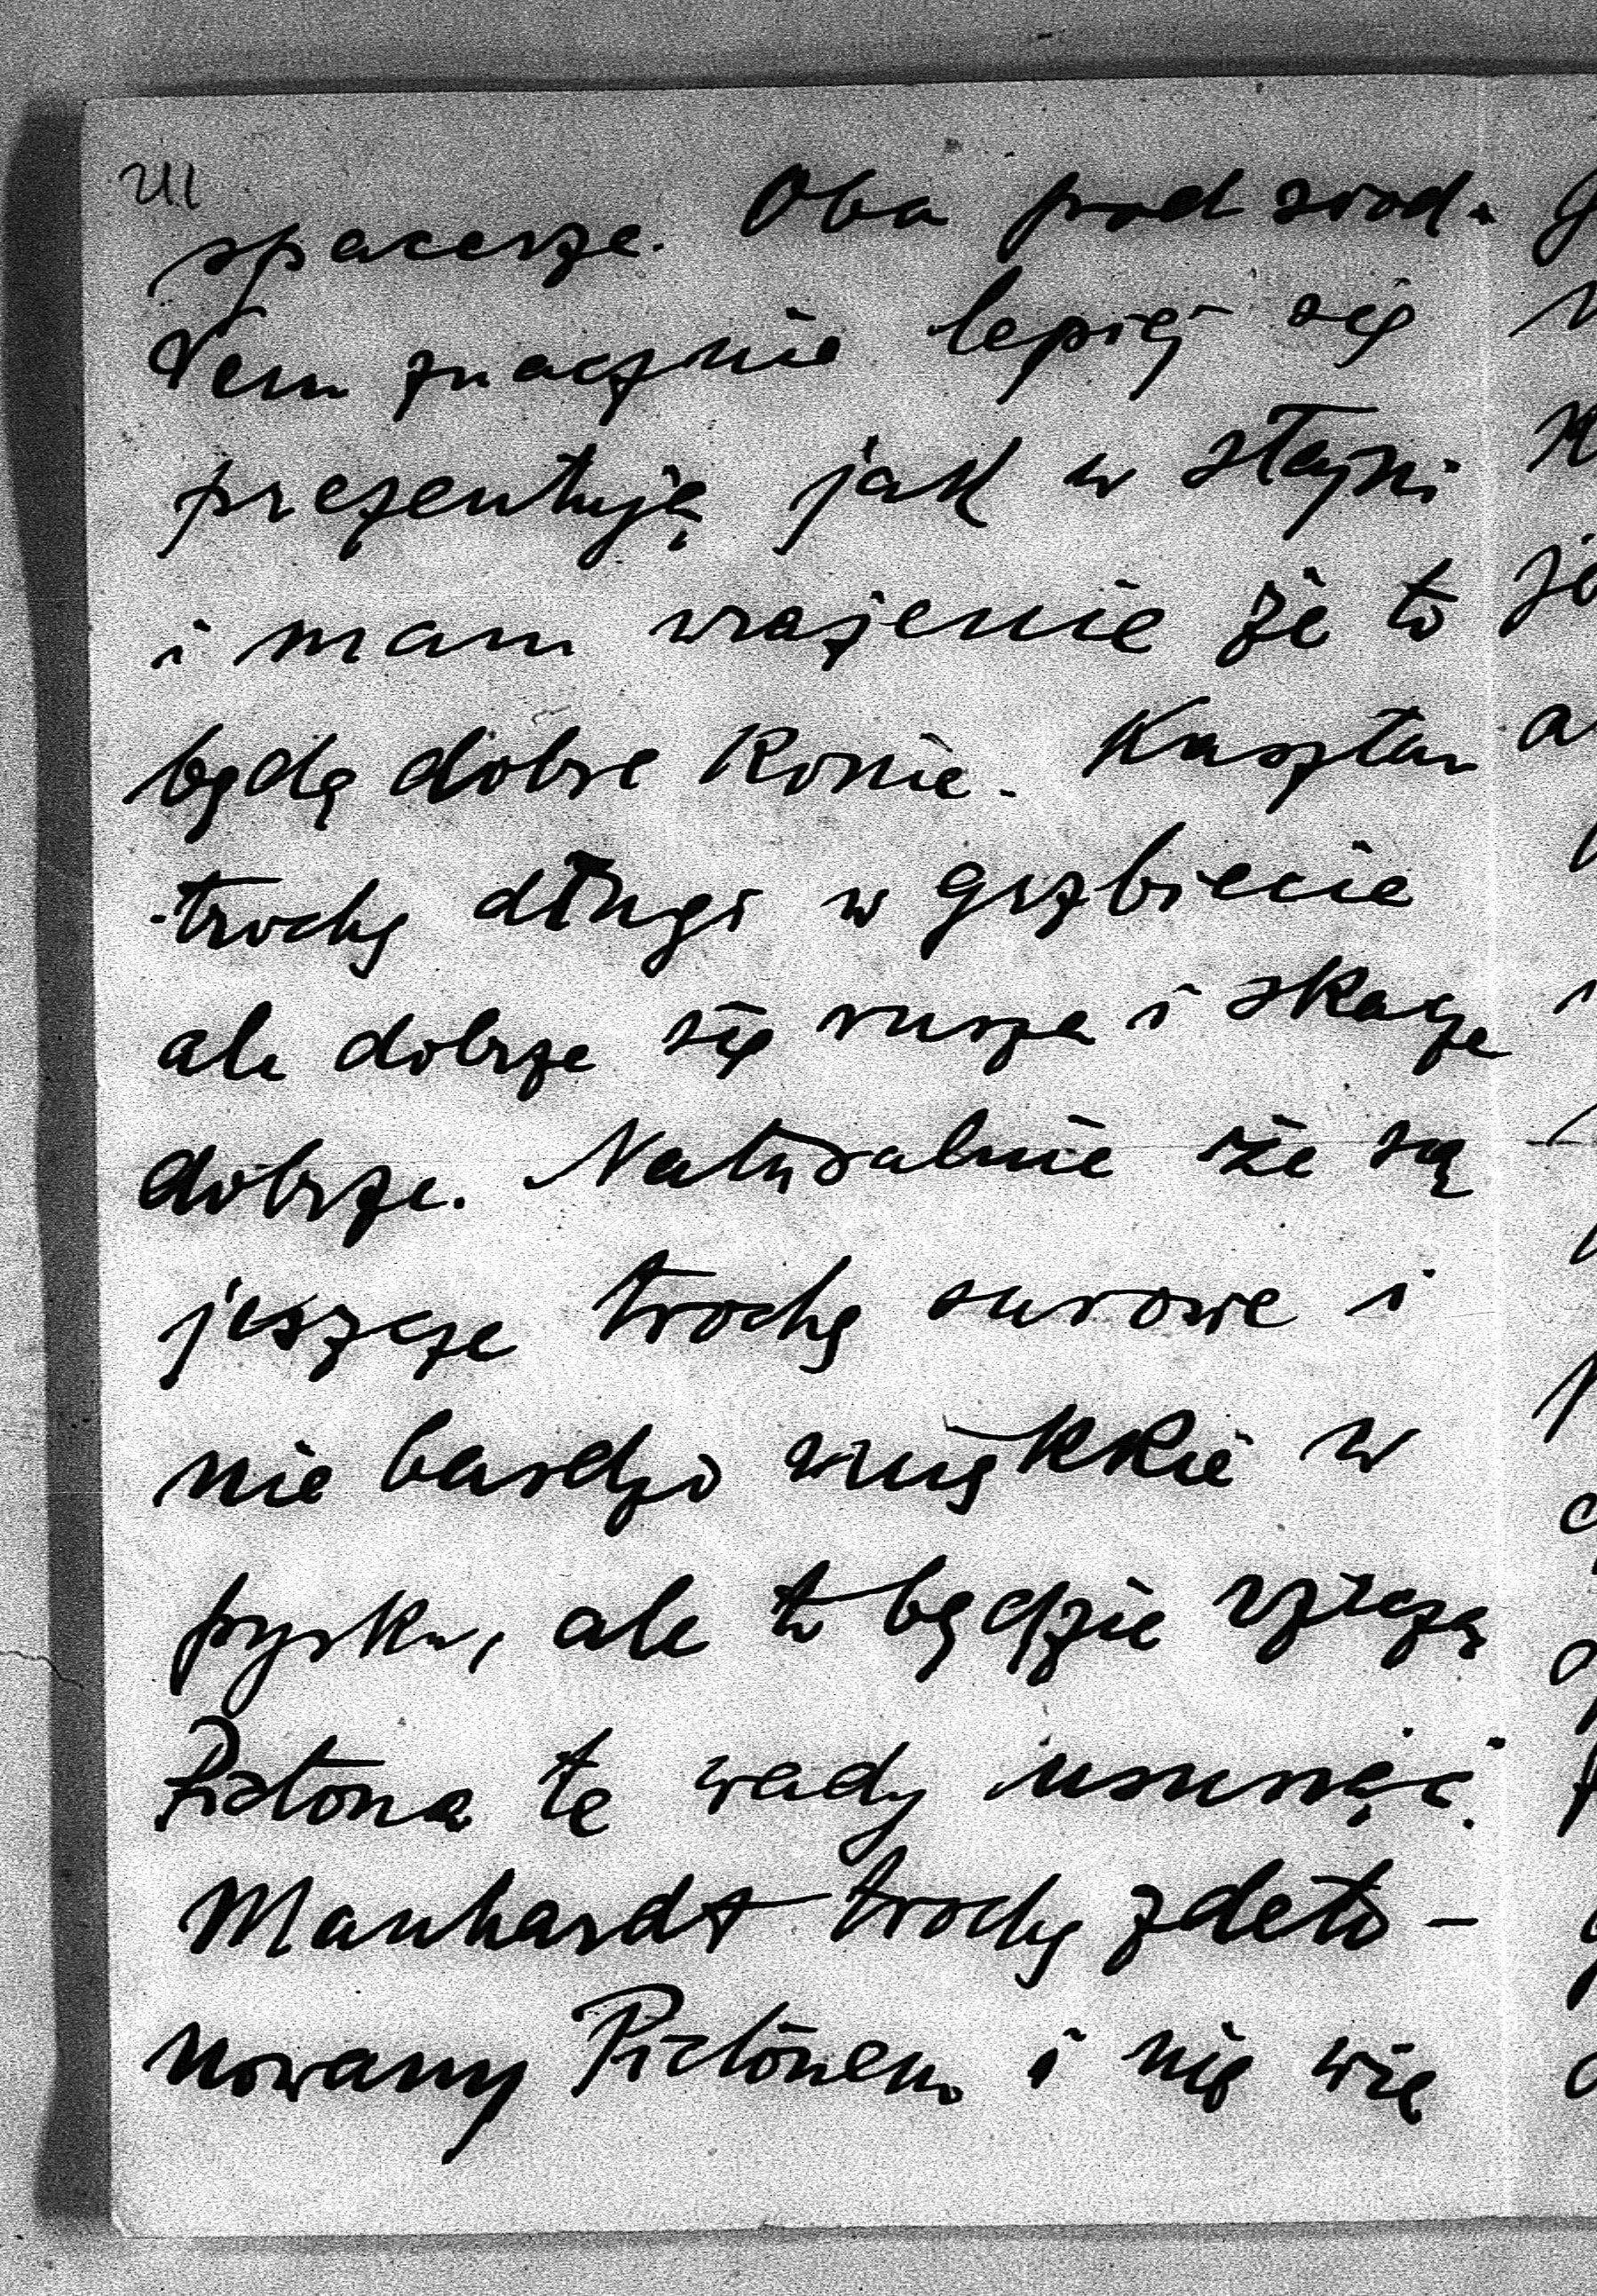 III
spacerze. Oba pod siod.
Tem znacznie lepiej się
prezentują jak w stajni
i mam wrażenie że to
będą dobre konie. Kasztan
trochę długi w grzbiecie
ale dobrze się rusza i skacze
dobrze. Naturalnie że są
jeszcze trochę surowe i
nie bardzo miękkie w
pysku, ale to będzie rzeczą
Pictona te wady usunąć.
Manhardt trochę zdeto-
nowany Pictonem i nie wie